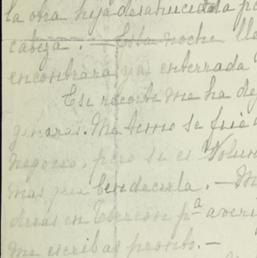 la otra hija desahuciada po
cabeza. — Esta noche lle
encontrará ya enterrada
Ese recorte me ha de
ginaras. Me temo se
negocio, pero si es Volun
mas que bendecirla. —
dias en Torreon pª averi
me escribas pronto. —